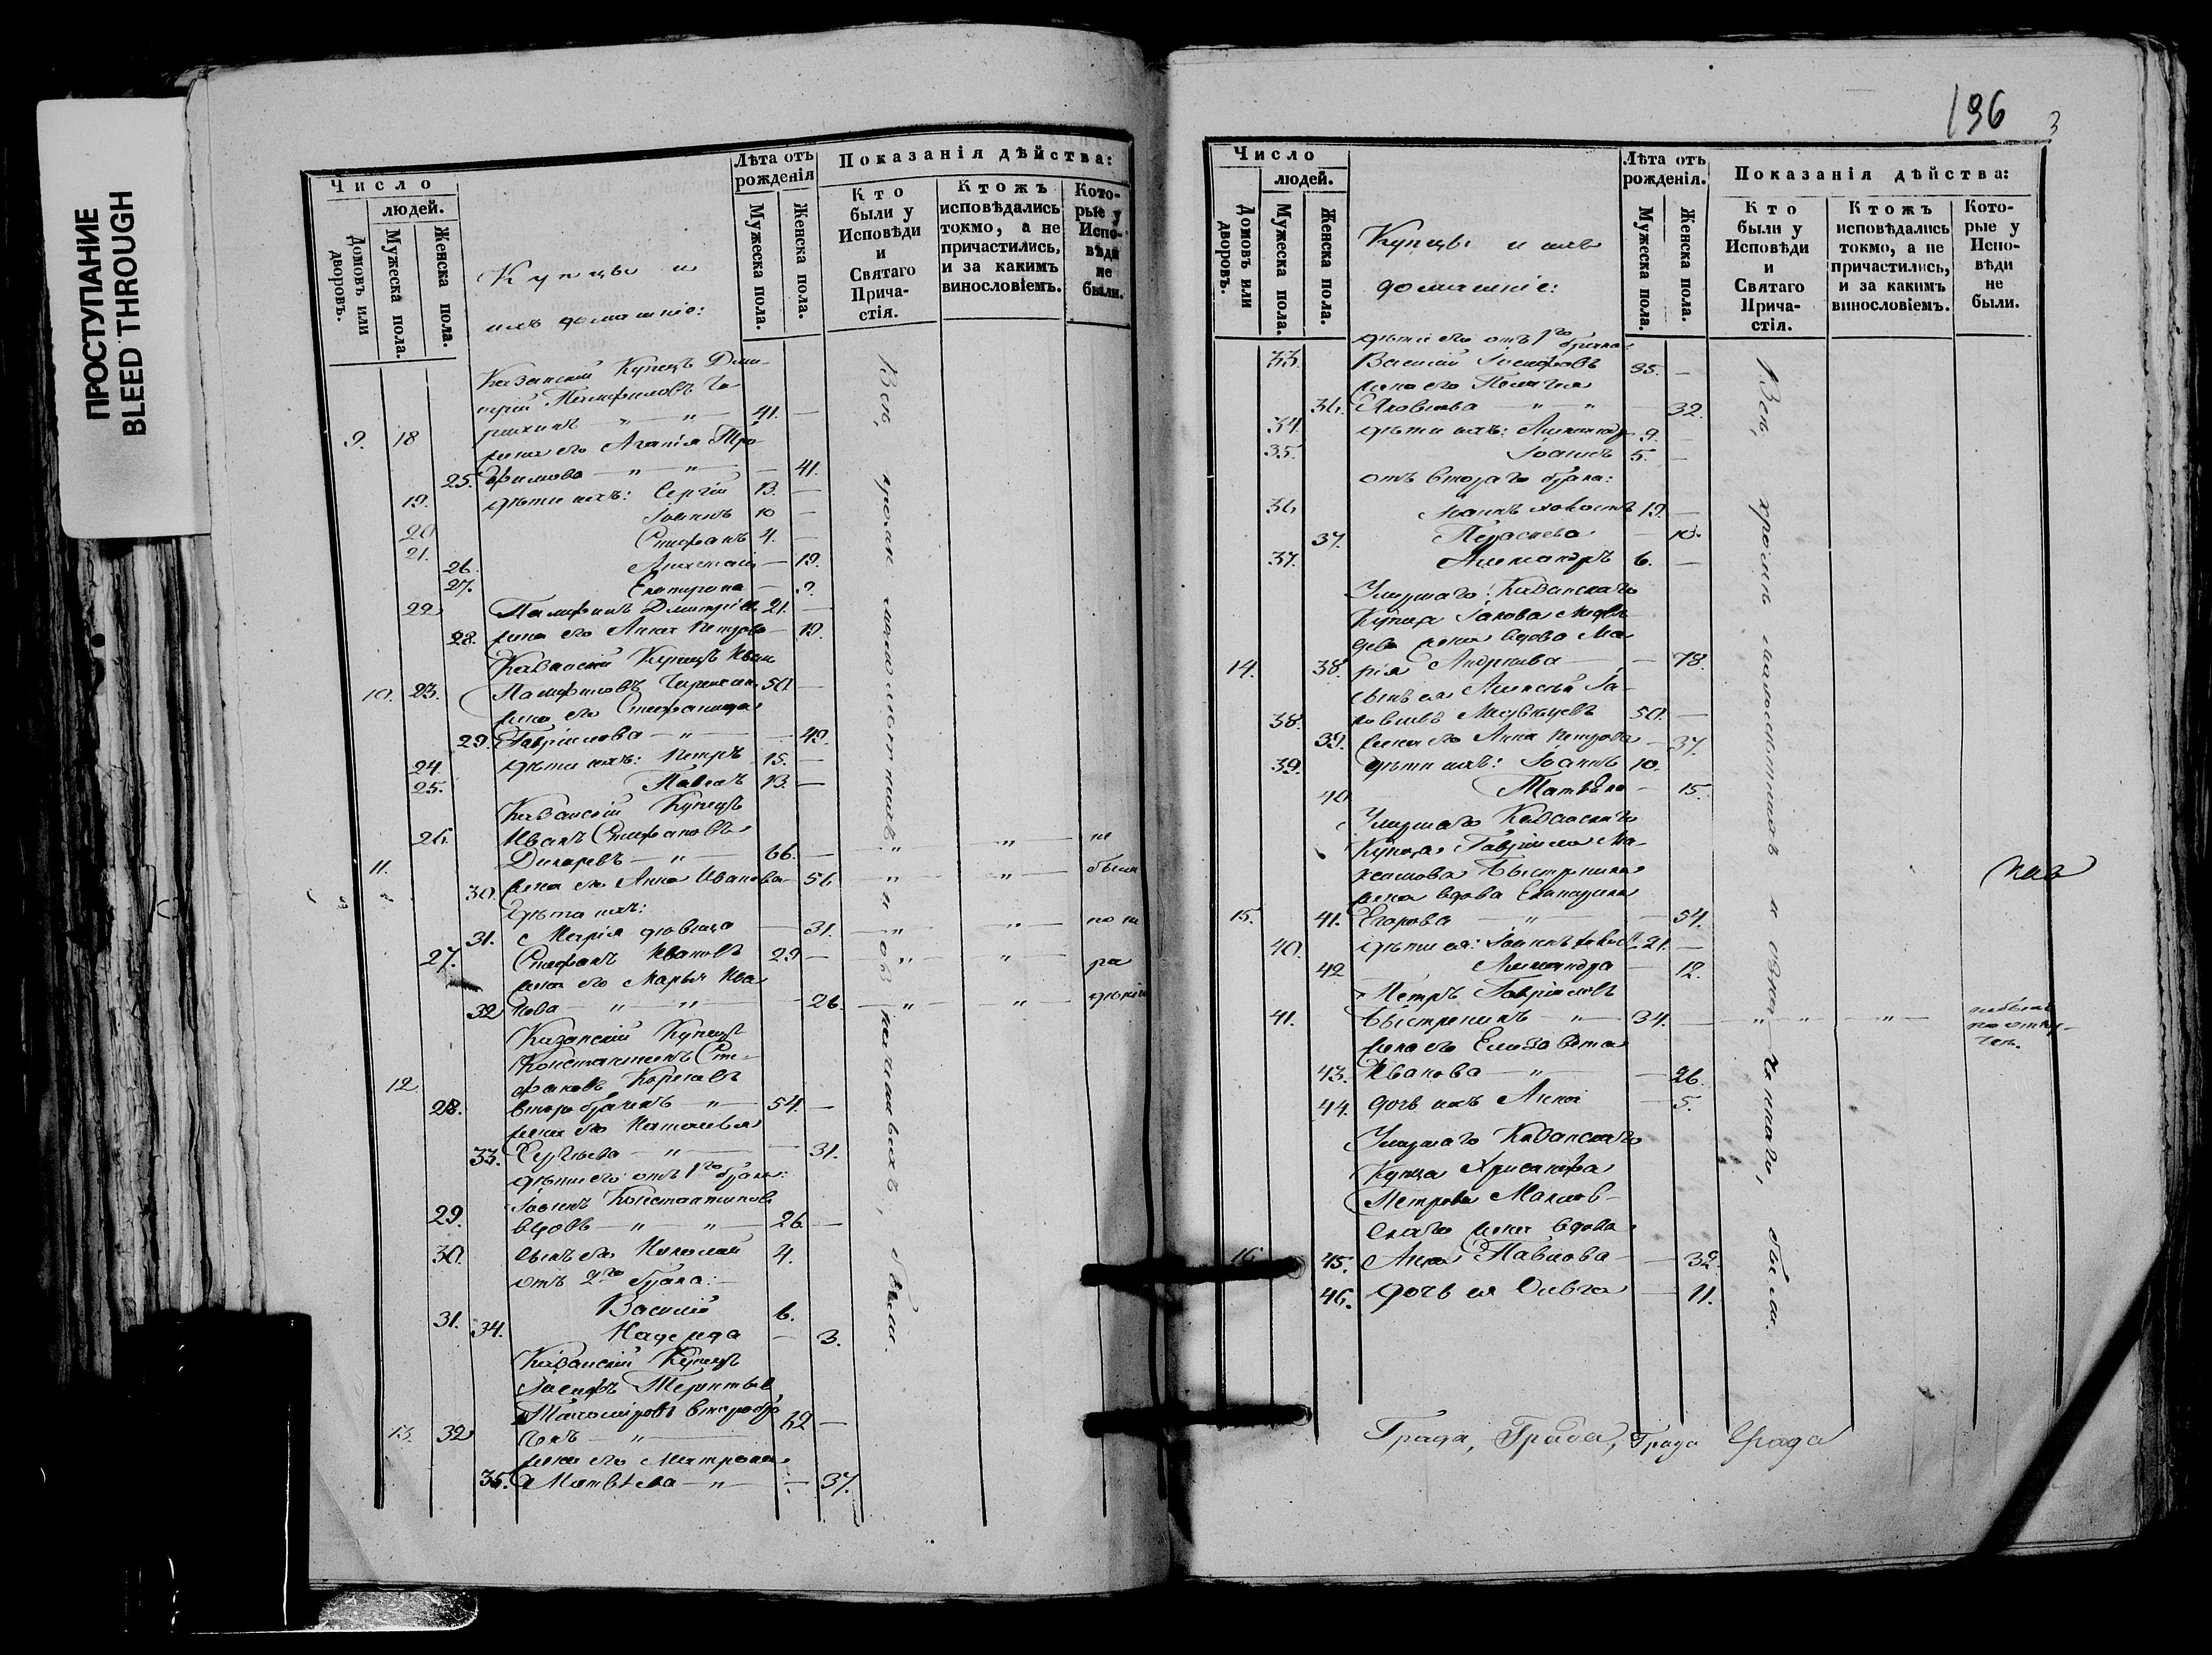 ПРОСТУПАНИЕ
BLEED THROUGH
Число
людей.
Домовъ или дворовъ.
Мужеска пола.
Женска пола.
Купцы и
ихъ домашніе:
Лѣта отъ рожденія
Мужеска пола.
Женска пола.
Показанія дѣйства:
Кто были у Исповѣди и Святаго Причастія.
Ктожъ исповѣдались токмо, а не причастились, и за какимъ винословіемъ.
Которые у Исповѣди не были.
Казанскій Купецъ Дми-
трій Памфиловъ
9. 18 41. —
жена его Агапія Тро-
25. фимова — " — " — — 41.
19. дѣти ихъ: Сергій 13. —
20 Іоаннъ 10 —
21. Стефанъ 4. —
26. — 19.
27. Екатерина — 9.
22 Памфилъ Дмитріевъ 21. —
28. жена его Анна Петрова — 19.
Казанскій Купецъ Иванъ
10. 23. Памфиловъ 50 —
жена его Стефанида
29. Гавріилова — " — — 49.
24. дѣти ихъ: Петръ 15. —
25. Павелъ 13. —
Казанскій Купецъ
26. Иванъ Стефановъ
11. Дикаревъ — " — 66. — " — " — не
30. жена его Анна Иванова — 56 " — " — были
Дѣти ихъ:
31. Марія дѣвица — 31. — " — " — по не
27. Стефанъ Ивановъ 29 — " — " — ра
жена его Марья Ива
32 нова " — " — 26. — " — " — дѣнію
Казанскій Купецъ
Константинъ Сте-
12 фановъ Кореневъ
28. второбрачный — " — 54. —
жена его Наталья
33. Сергѣева — " — — 31.
дѣти его отъ 1го брака:
29. Іоаннъ Константиновъ
вдовъ — " — " — 26. —
30. сынъ его Николай 4.
отъ 2го брака:
31. Василій 6.
34. Надежда — 3.
Казанскій Купецъ
Іосифъ Терентьев
13. 32 второбра 62 —
чный — " —
жена его Матрона
35. Матвѣева — " — — 37.
Всѣ, кромѣ малолѣтнихъ и означенныхъ, были.
196
3
Число
людей.
Домовъ или дворовъ.
Мужеска пола.
Женска пола.
Купцы и ихъ
домашніе:
Лѣта отъ рожденія.
Мужеска пола.
Женска пола.
Показанія дѣйства:
Кто были у Исповѣди и Святаго Причастія.
Ктожъ исповѣдались токмо, а не причастились, и за какимъ винословіемъ.
Которые у Исповѣди не были.
дѣти его отъ 1го брака:
33. Василій Іосифовъ 35. —
жена его Пелагея
36. Яковлева — " — " — — 32.
34. дѣти ихъ: Александръ 9. —
35. Іоаннъ 5. —
отъ втораго брака:
36 Іоаннъ холостъ 19. —
37. Парасковья — 10.
37. Александръ 6. —
Умершаго Казанскаго
Купца Іакова Медвѣ
дева жена вдова Ма
14. 38. рія Андреева — — 78.
сынъ ея Алексѣй Іа-
38. ковлевъ Медвѣдевъ 50. —
39. жена его Анна Петрова — 37.
39. дѣти ихъ: Іоаннъ 10.
40 — 15.
Умершаго Казанскаго
Купца Гавріила Ма-
ксимова Быстренина
жена вдова Екатерина
15. 41. Егорова — " — — 54.
40. дѣти ея: Іоаннъ холост. 21. —
42 Александра — 12.
Петръ Гавріиловъ
41. Быстренинъ — " — 34. — " — " — " — небылъ
по отлу-
чкѣ.
жена его Елизавета
43. Иванова — " — — 26.
44. дочь ихъ Анна — 5.
Умершаго Казанскаго
Купца Хрисанфа
Петрова
жена вдова
16 45. Анна Павлова — — 32.
46. дочь ея Ольга — 11.
Всѣ, кромѣ малолѣтнихъ и означеннаго, были.
Града, Града, Града Града